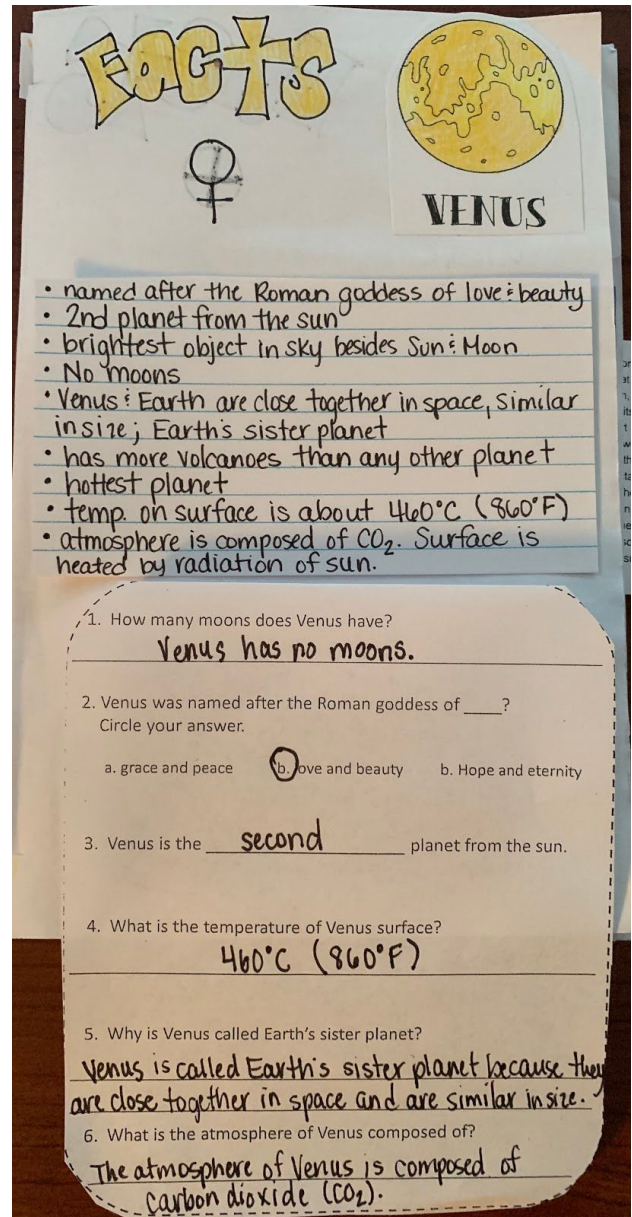 FACTS
♀
VENUS
• named after the Roman goddess of love & beauty
• 2nd planet from the sun
• brightest object in sky besides Sun & Moon
• No moons
• Venus & Earth are close together in space, similar
in size; Earth's sister planet
• has more volcanoes than any other planet
• hottest planet
• temp. on surface is about 460°C (860°F)
• atmosphere is composed of CO₂. Surface is
heated by radiation of sun.
1. How many moons does Venus have?
Venus has no moons.
2. Venus was named after the Roman goddess of ____?
Circle your answer.
a. grace and peace b. love and beauty b. Hope and eternity
3. Venus is the second planet from the sun.
4. What is the temperature of Venus surface?
460°C (860°F)
5. Why is Venus called Earth's sister planet?
Venus is called Earth's sister planet because they
are close together in space and are similar in size.
6. What is the atmosphere of Venus composed of?
The atmosphere of Venus is composed of
carbon dioxide (CO₂).